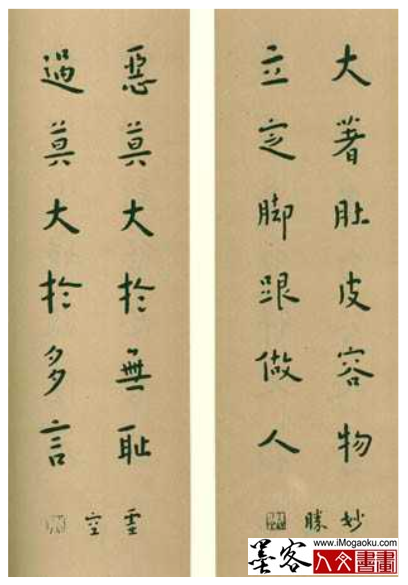 大著肚皮容物
立定脚跟做人
妙
勝
惡莫大於無耻
過莫大於多言
空
墨客
www.iMogaoku.com
人文書畫